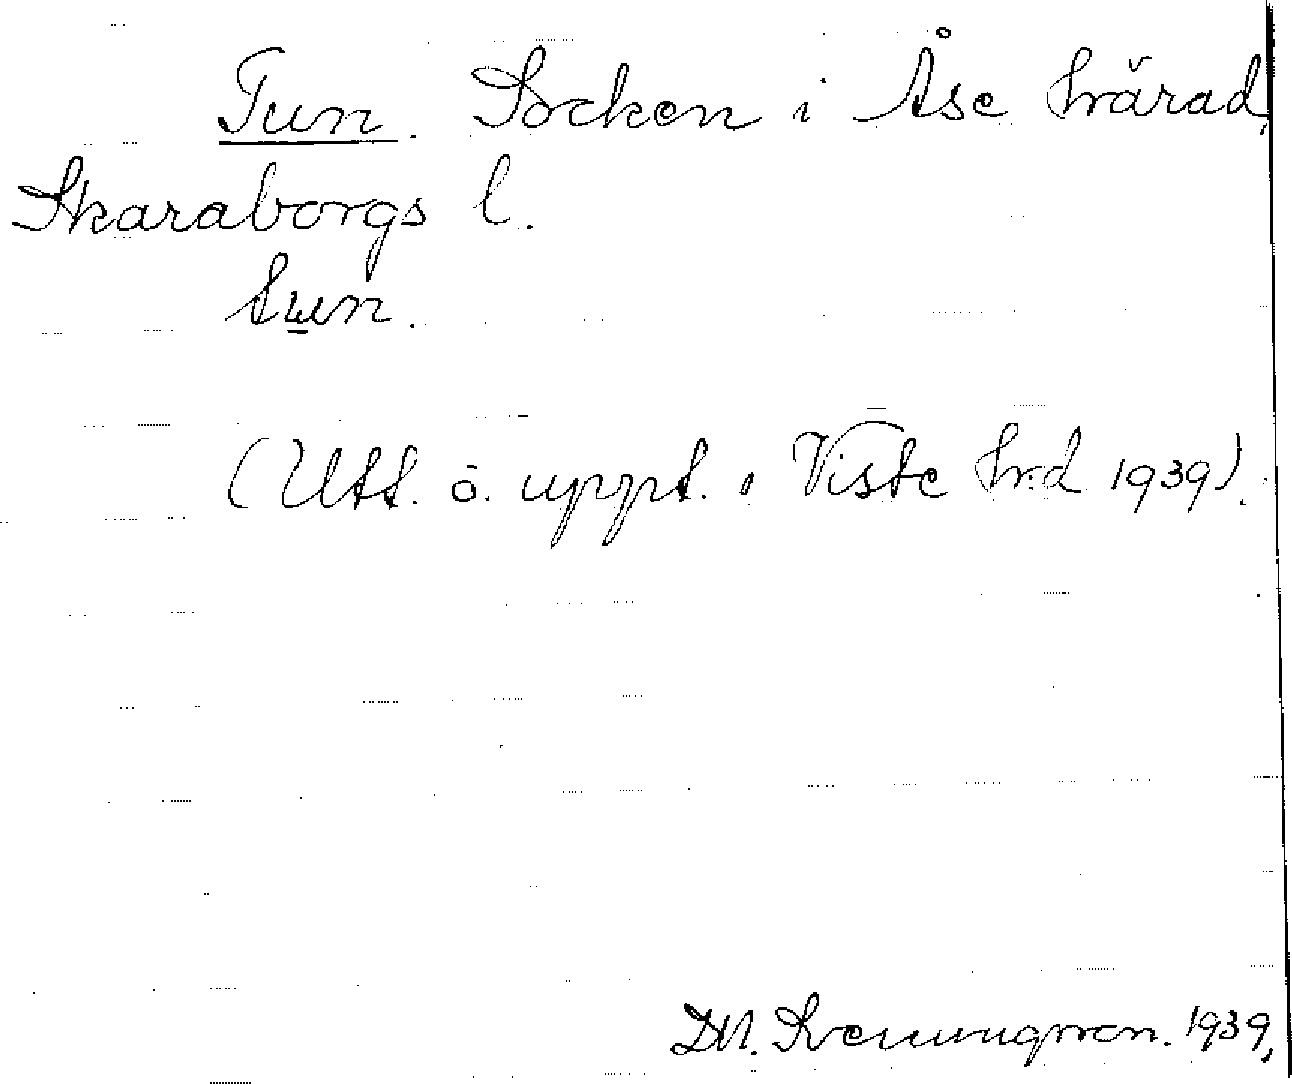 Tun. Socken i Åse härad,
Skaraborgs l.
tu̲n.
(Utt. o. uppt. i Viste hrd 1939).
D. A. Svenungsson. 1939,